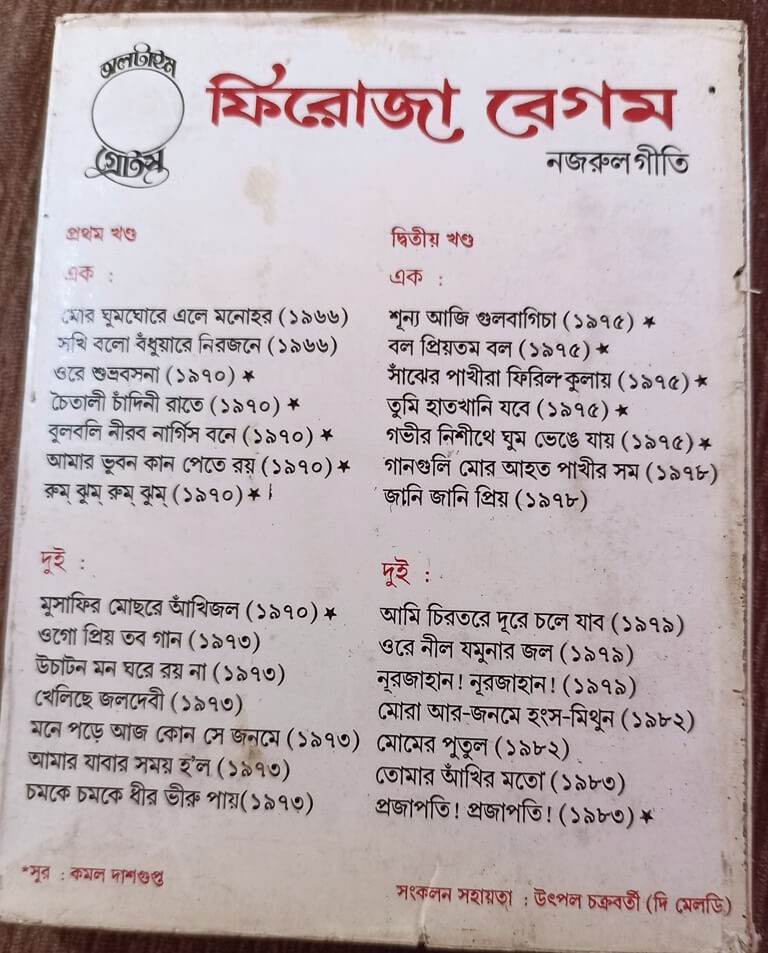 অলটাইম
গ্রেটস্
ফিরোজা বেগম
নজরুল গীতি
প্রথম খণ্ড
এক :
মোর ঘুমঘোরে এলে মনোহর (১৯৬৬)
সখি বলো বঁধুয়ারে নিরজনে (১৯৬৬)
ওরে শুভ্রবসনা (১৯৭০) ★
চৈতালী চাঁদিনী রাতে (১৯৭০) ★
বুলবুলি নীরব নার্গিস বনে (১৯৭০) ★
আমার ভুবন কান পেতে রয় (১৯৭০) ★
রুম্ ঝুম্ রুম্ ঝুম্ (১৯৭০) ★
দুই :
মুসাফির মোছরে আঁখিজল (১৯৭০) ★
ওগো প্রিয় তব গান (১৯৭৩)
উচাটন মন ঘরে রয় না (১৯৭৩)
খেলিছে জলদেবী (১৯৭৩)
মনে পড়ে আজ কোন সে জনমে (১৯৭৩)
আমার যাবার সময় হ'ল (১৯৭৩)
চমকে চমকে ধীর ভীরু পায়(১৯৭৩)
দ্বিতীয় খণ্ড
এক :
শূন্য আজি গুলবাগিচা (১৯৭৫) ★
বল প্রিয়তম বল (১৯৭৫) ★
সাঁঝের পাখীরা ফিরিল কুলায় (১৯৭৫) ★
তুমি হাতখানি যবে (১৯৭৫) ★
গভীর নিশীথে ঘুম ভেঙে যায় (১৯৭৫) ★
গানগুলি মোর আহত পাখীর সম (১৯৭৮)
জানি জানি প্রিয় (১৯৭৮)
দুই :
আমি চিরতরে দূরে চলে যাব (১৯৭৯)
ওরে নীল যমুনার জল (১৯৭৯)
নূরজাহান! নূরজাহান! (১৯৭৯)
মোরা আর-জনমে হংস-মিথুন (১৯৮২)
মোমের পুতুল (১৯৮২)
তোমার আঁখির মতো (১৯৮৩)
প্রজাপতি! প্রজাপতি! (১৯৮৩) ★
*সুর : কমল দাশগুপ্ত
সংকলন সহায়তা : উৎপল চক্রবর্তী (দি মেলডি)